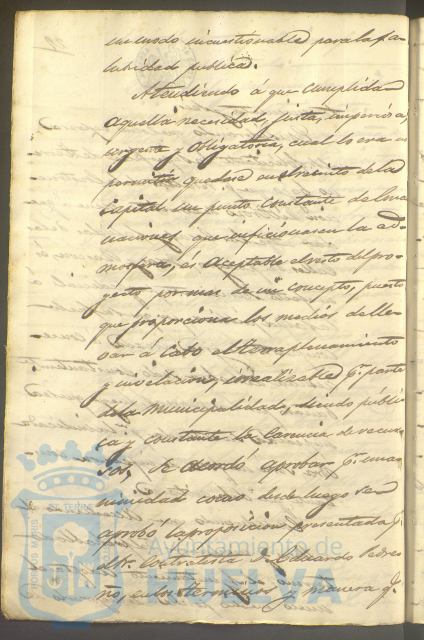 un modo incuestionable para la sa-
lubridad publica.
Atendiendo á que cumplida
aquella necesidad, justa, imperiosa
urgente y obligatoria, cual lo era no
permitir quedase en el recinto de la
Capital un punto constante de Ema
naciones que inficionasen la at-
mosfera, és Aceptable el resto del pro-
yecto por mas de un concepto, puesto
que proporciona los medios de lle-
var á cabo el terraplenamiento
y nivelacion, irrealizable pr. parte
de la Municipalidad, siendo públi-
ca y constante la carencia de recur-
sos, Se acordó aprobar pr. unani
nimidad como desde luego se
aprobó la proposicion presentada pr.
el Sr. Contratista D. Eduardo
en los terminos y manera qe.
Ayuntamiento de
HUELVA